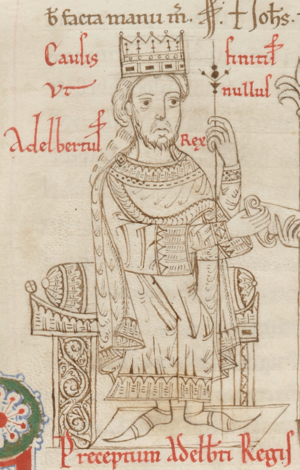 facta manu m. S. + Johs.
Causis finitis
ut nullus
Adelbertus Rex
Preceptum Adelbti Regis